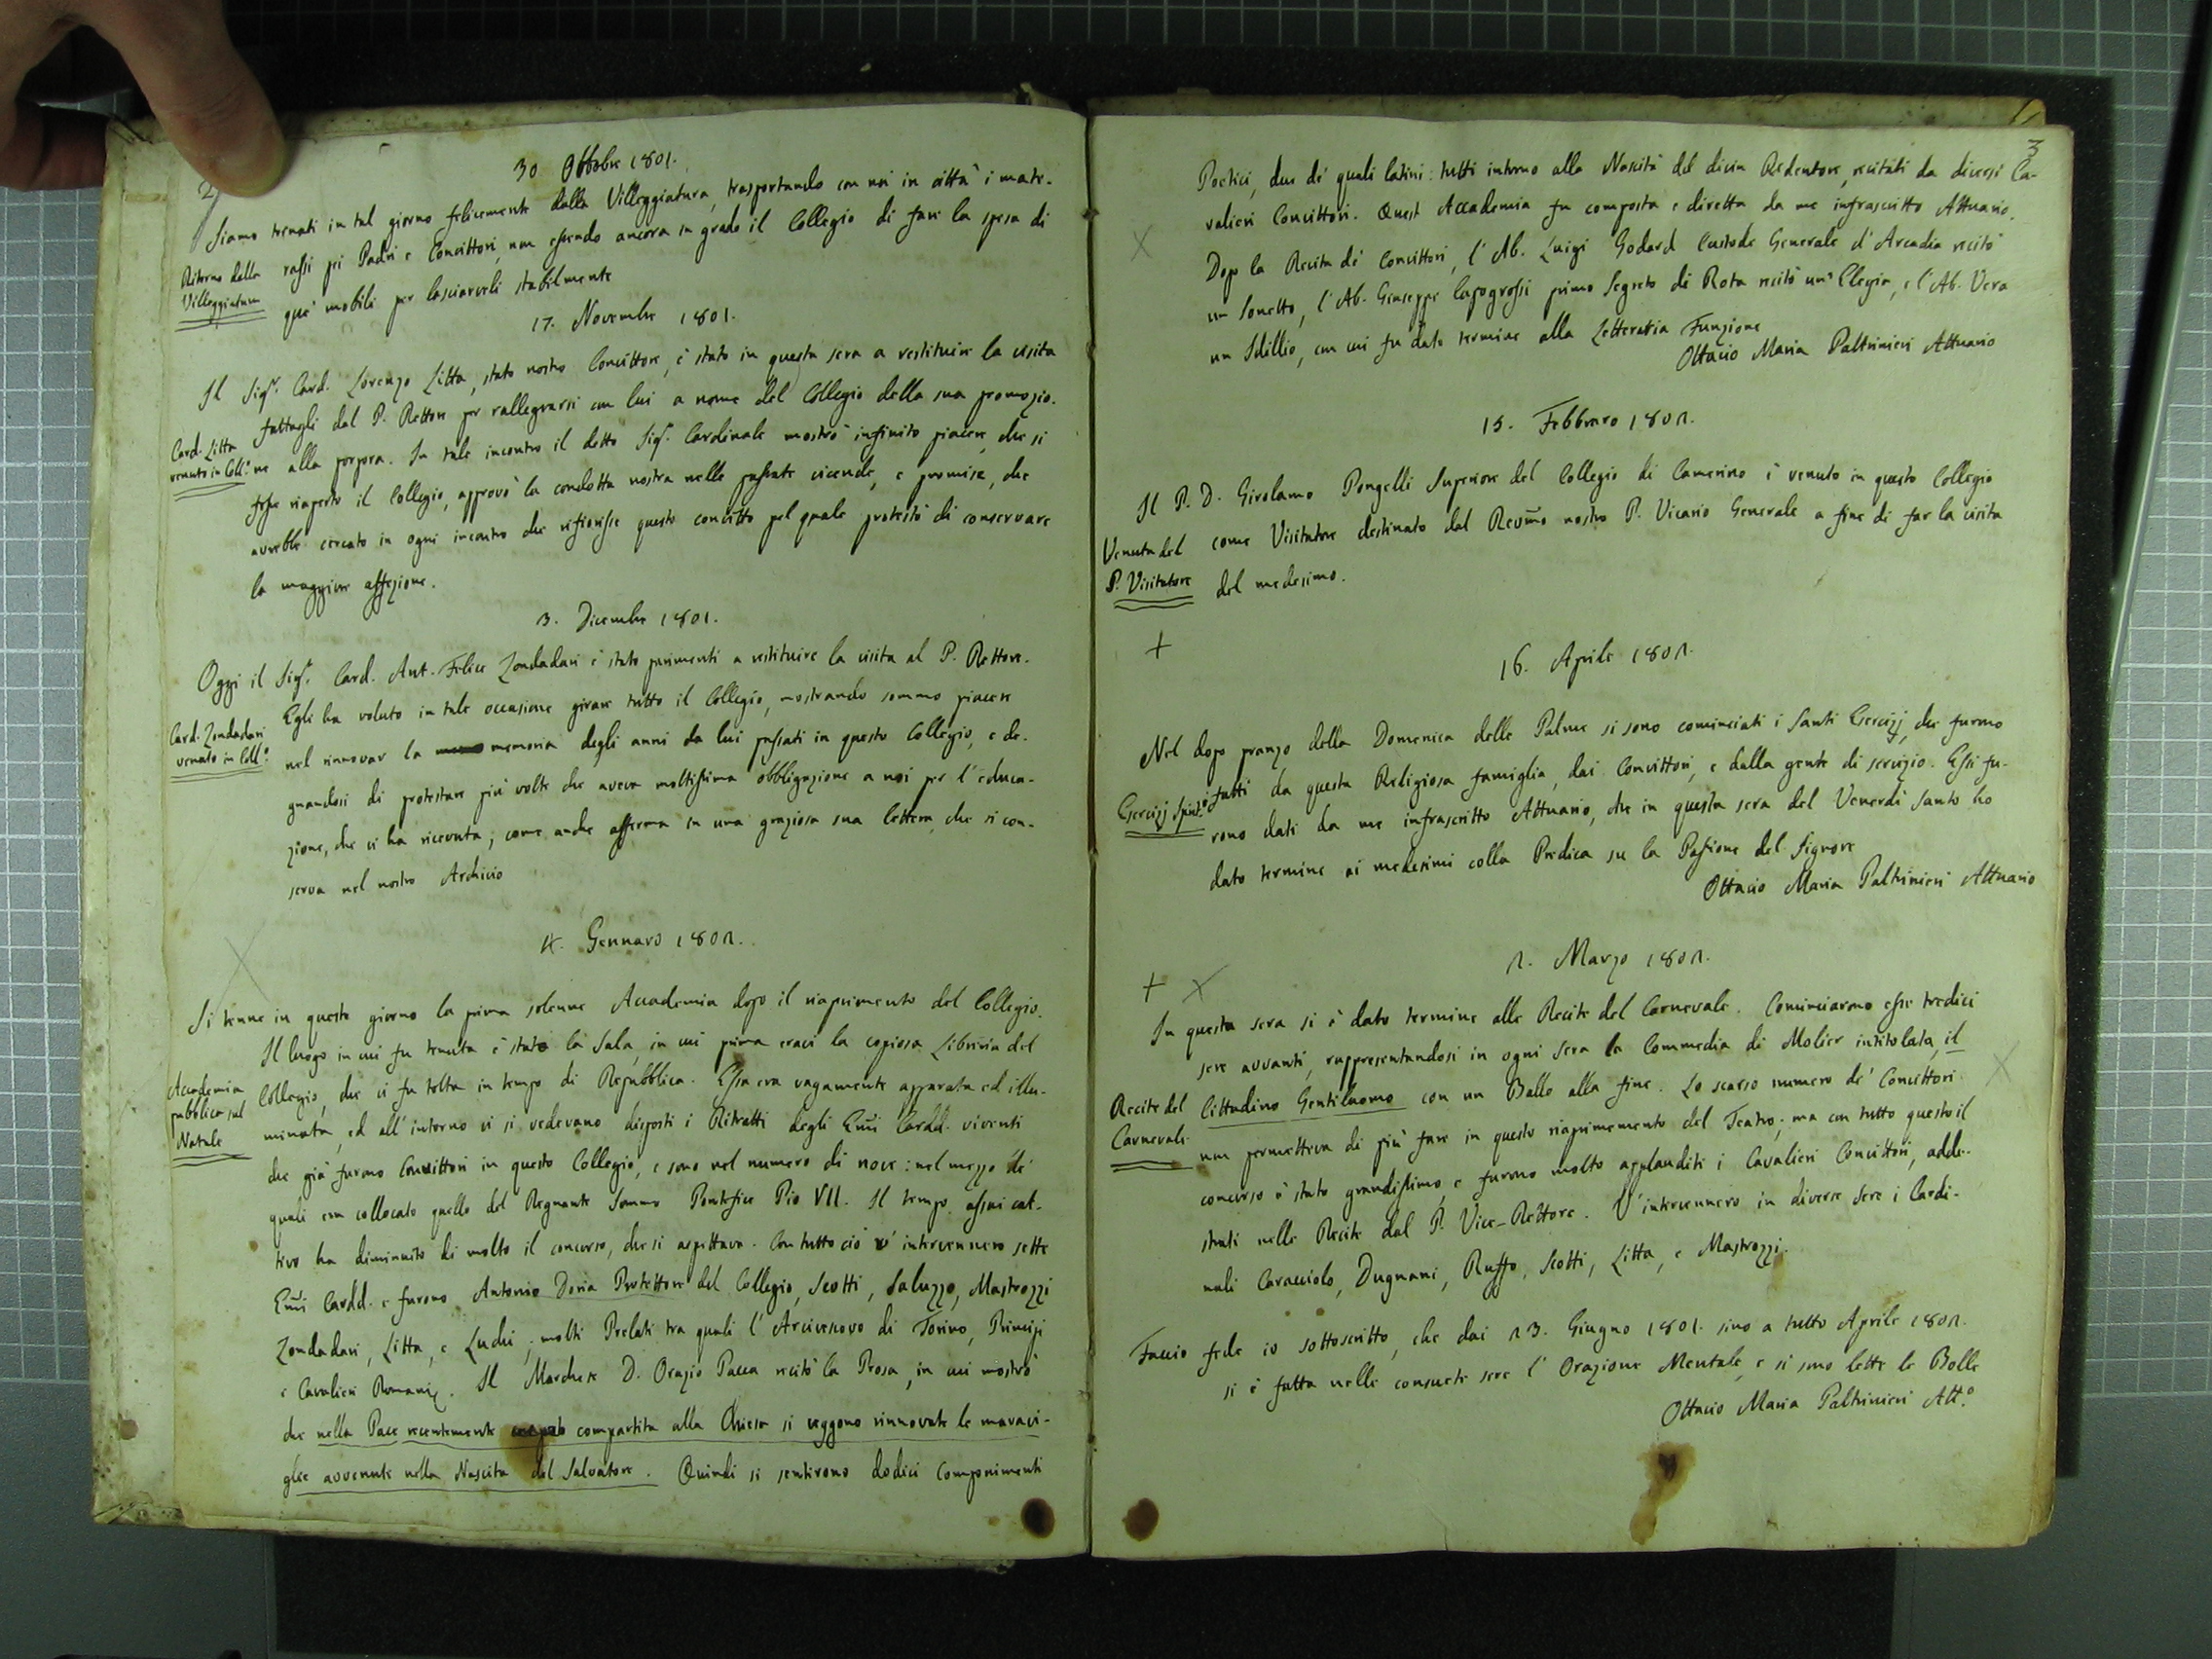 2
30 Ottobre 1801.
Siamo tornati in tal giorno felicemente dalla Villeggiatura, trasportando con noi in città i mate-
Ritorno dalla
Villeggiatura
rassi pei Padri e Convittori, non essendo ancora in grado il Collegio di fare la spesa di
que' mobili per lasciarveli stabilmente
17. Novembre 1801.
Il Sigr. Card. Lorenzo Litta, stato nostro Convittore, è stato in questa sera a restituire la visita
fattagli dal P. Rettore per rallegrarsi con lui a nome del Collegio della sua promozio-
Card. Litta
venuto in Coll.o
ne alla porpora. In tale incontro il detto Sigr. Cardinale mostrò infinito piacere, che si
fosse riaperto il Collegio, approvò la condotta nostra nelle passate vicende, e promise, che
avrebbe cercato in ogni incontro che rifiorisse questo convitto pel quale protestò di conservare
la maggiore affezione.
3. Dicembre 1801.
Oggi il Sigr. Card. Ant. Felice Zondadari è stato parimenti a restituire la visita al P. Rettore.
Egli ha voluto in tale occasione girare tutto il Collegio, mostrando sommo piacere
Card. Zondadari
venuto in Coll.o
nel rinnovar la memoria degli anni da lui passati in questo Collegio, e de-
gnandosi di protestare più volte che aveva moltissima obbligazione a noi per l'educa-
zione, che vi ha ricevuta; come anche afferma in una graziosa sua lettera, che si con-
serva nel nostro Archivio
4. Gennaro 1802.
Si tenne in questo giorno la prima solenne Accademia dopo il riaprimento del Collegio.
Il luogo in cui fu tenuta è stato la Sala, in cui prima eravi la copiosa Libreria del
Accademia
pubblica sul
Natale
Collegio, che ci fu tolta in tempo di Repubblica. Essa era vagamente apparata ed illu-
minata, ed all'intorno vi si vedevano disposti i Ritratti degli Emi Cardd. viventi
che già furono Convittori in questo Collegio, e sono nel numero di nove: nel mezzo de'
quali era collocato quello del Regnante Sommo Pontefice Pio VII. Il tempo assai cat-
tivo ha diminuito di molto il concorso, che si aspettava. Con tutto ciò v' intervennero sette
Emi Cardd. e furono Antonio Doria Protettore del Collegio, Scotti, Saluzzo, Mastrozzi
Zondadari, Litta, e Luchi; molti Prelati tra quali l'Arcivescovo di Torino, Principi
e Cavalieri Romani. Il Marchese D. Orazio Pacca recitò la Prosa, in cui mostrò
che nella Pace recentemente compartita alla Chiesa si veggono rinnovate le maravi-
glie avvenute nella Nascita del Salvatore. Quindi si sentirono dodici Componimenti
3
Poetici, due de' quali latini: tutti intorno alla Nascita del divin Redentore, recitati da diversi Ca-
valieri Convittori. Quest Accademia fu composta e diretta da me infrascritto Attuario.
Dopo la Recita de' Convittori, l'Ab. Luigi Godard Custode Generale d'Arcadia recitò
un Sonetto, l'Ab. Giuseppe Capogrossi primo Segreto di Rota recitò un' Elegia, e l'Ab. Vera
un Idillio, con cui fu dato termine alla Letteraria Funzione
Ottavio Maria Paltrinieri Attuario
15. Febbraro 1802.
Il P. D. Girolamo Pongelli Superiore del Collegio di Camerino è venuto in questo Collegio
Venuta del
P. Visitatore
come Visitatore destinato dal Revmo nostro P. Vicario Generale a fine di far la visita
del medesimo.
16. Aprile 1802.
Nel dopo pranzo della Domenica delle Palme si sono cominciati i Santi Esercizj, che furono
Esercizj Spirit.i
fatti da questa Religiosa famiglia, dai Convittori, e dalla gente di servizio. Essi fu-
rono dati da me infrascritto Attuario, che in questa sera del Venerdì Santo ho
dato termine ai medesimi colla Predica su la Passione del Signore
Ottavio Maria Paltrinieri Attuario
2. Marzo 1802.
In questa sera si è dato termine alle Recite del Carnevale. Cominciarono esse tredici
sere avvanti, rappresentandosi in ogni sera la Commedia di Molier intitolata, il
Recite del
Carnevale
Cittadino Gentiluomo con un Ballo alla fine. Lo scarso numero de' Convittori
non permetteva di più fare in questo riaprimemento del Teatro; ma con tutto questo il
concorso è stato grandissimo, e furono molto applauditi i Cavalieri Convittori, adde-
strati nelle Recite dal P. Vice-Rettore. V'intervennero in diverse sere i Cardi-
nali Caracciolo, Dugnani, Ruffo, Scotti, Litta, e Mastrozzi.
Faccio fede io sottoscritto, che dai 23. Giugno 1801. sino a tutto Aprile 1802.
si è fatta nelle consuete sere l'Orazione Mentale, e si sono lette le Bolle
Ottavio Maria Paltrinieri Att.o